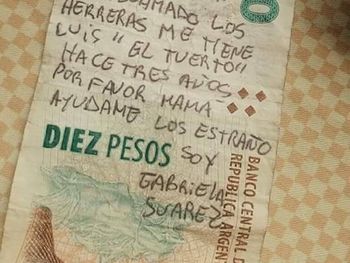 LLAMADO LOS
HERRERAS ME TIENE
LUIS "EL TUERTO"
HACE TRES AÑOS
POR FAVOR MAMA
AYUDAME LOS ESTRAÑO
DIEZ PESOS SOY
GABRIELA
SUAREZ
BANCO CENTRAL D
REPUBLICA ARGEN
0